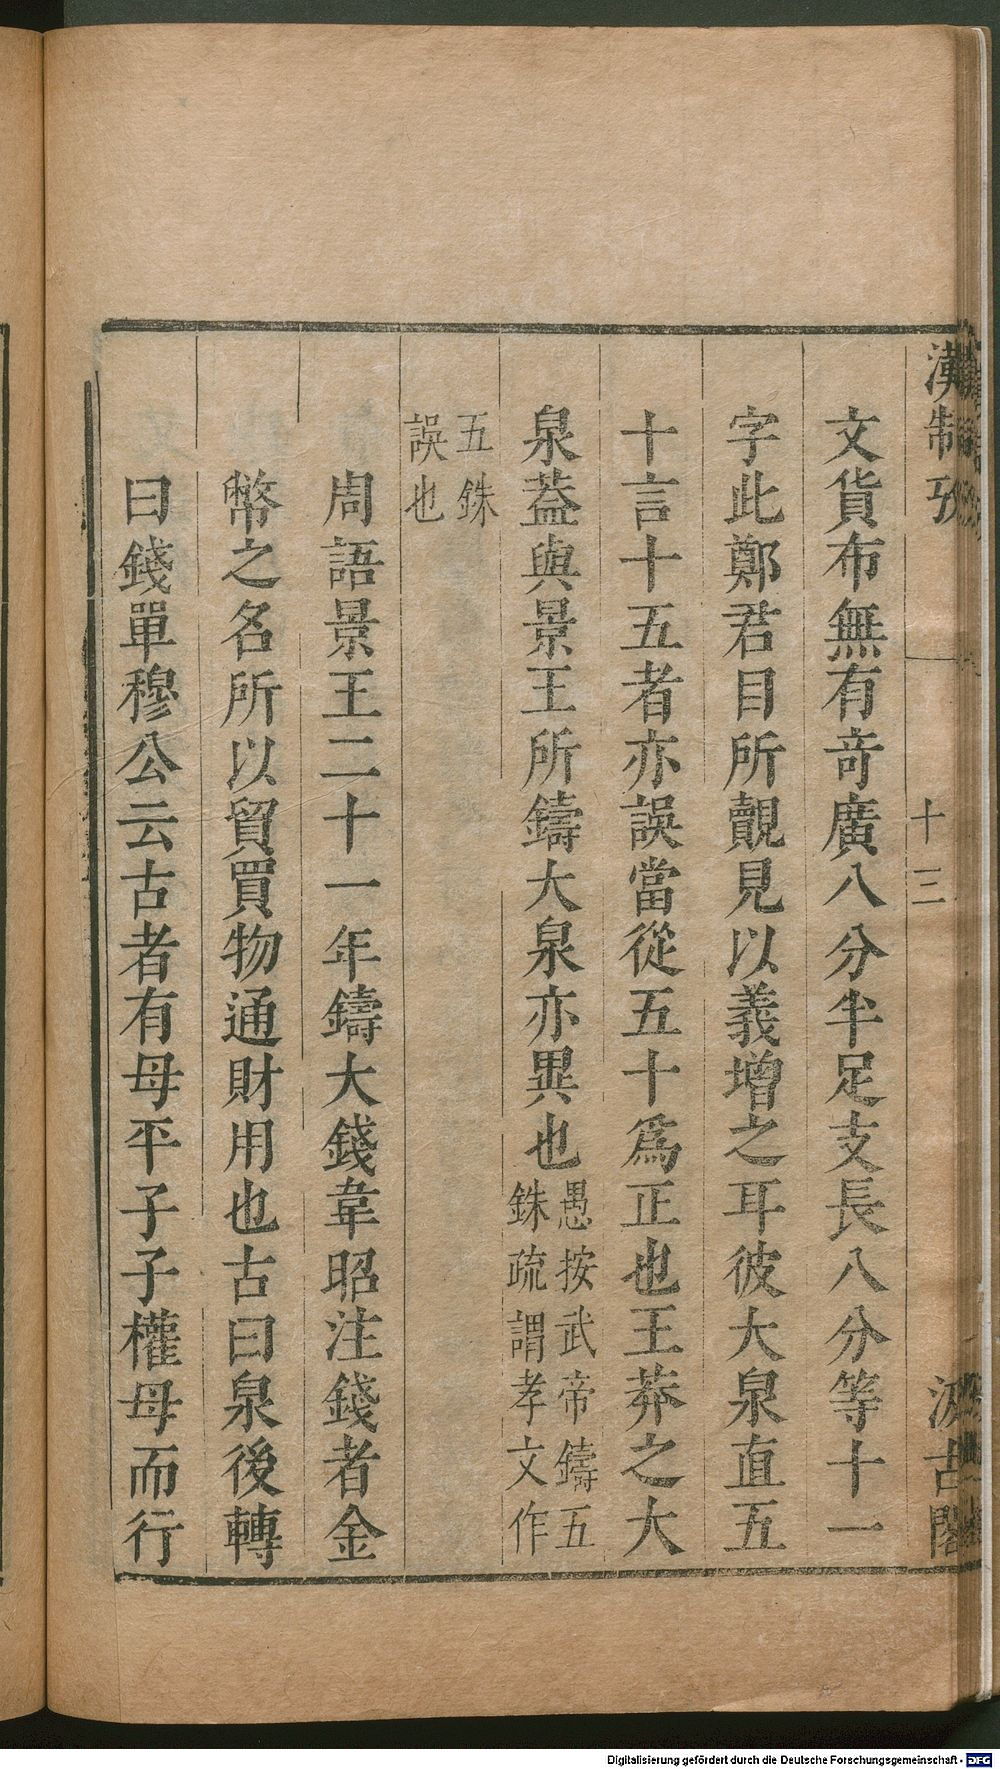 漢制攷
十三
汲古閣
文貨布無有竒廣八分半足支長八分等十一
字此鄭君目所覩見以義增之耳彼大泉直五
十言十五者亦誤當從五十爲正也王莽之大
泉葢與景王所鑄大泉亦異也愚按武帝鑄五
銖疏謂孝文作
五銖
誤也
周語景王二十一年鑄大錢韋昭注錢者金
幣之名所以貿買物通財用也古曰泉後轉
曰錢單穆公云古者有母平子子權母而行
Digitalisierung gefördert durch die Deutsche Forschungsgemeinschaft - DFG